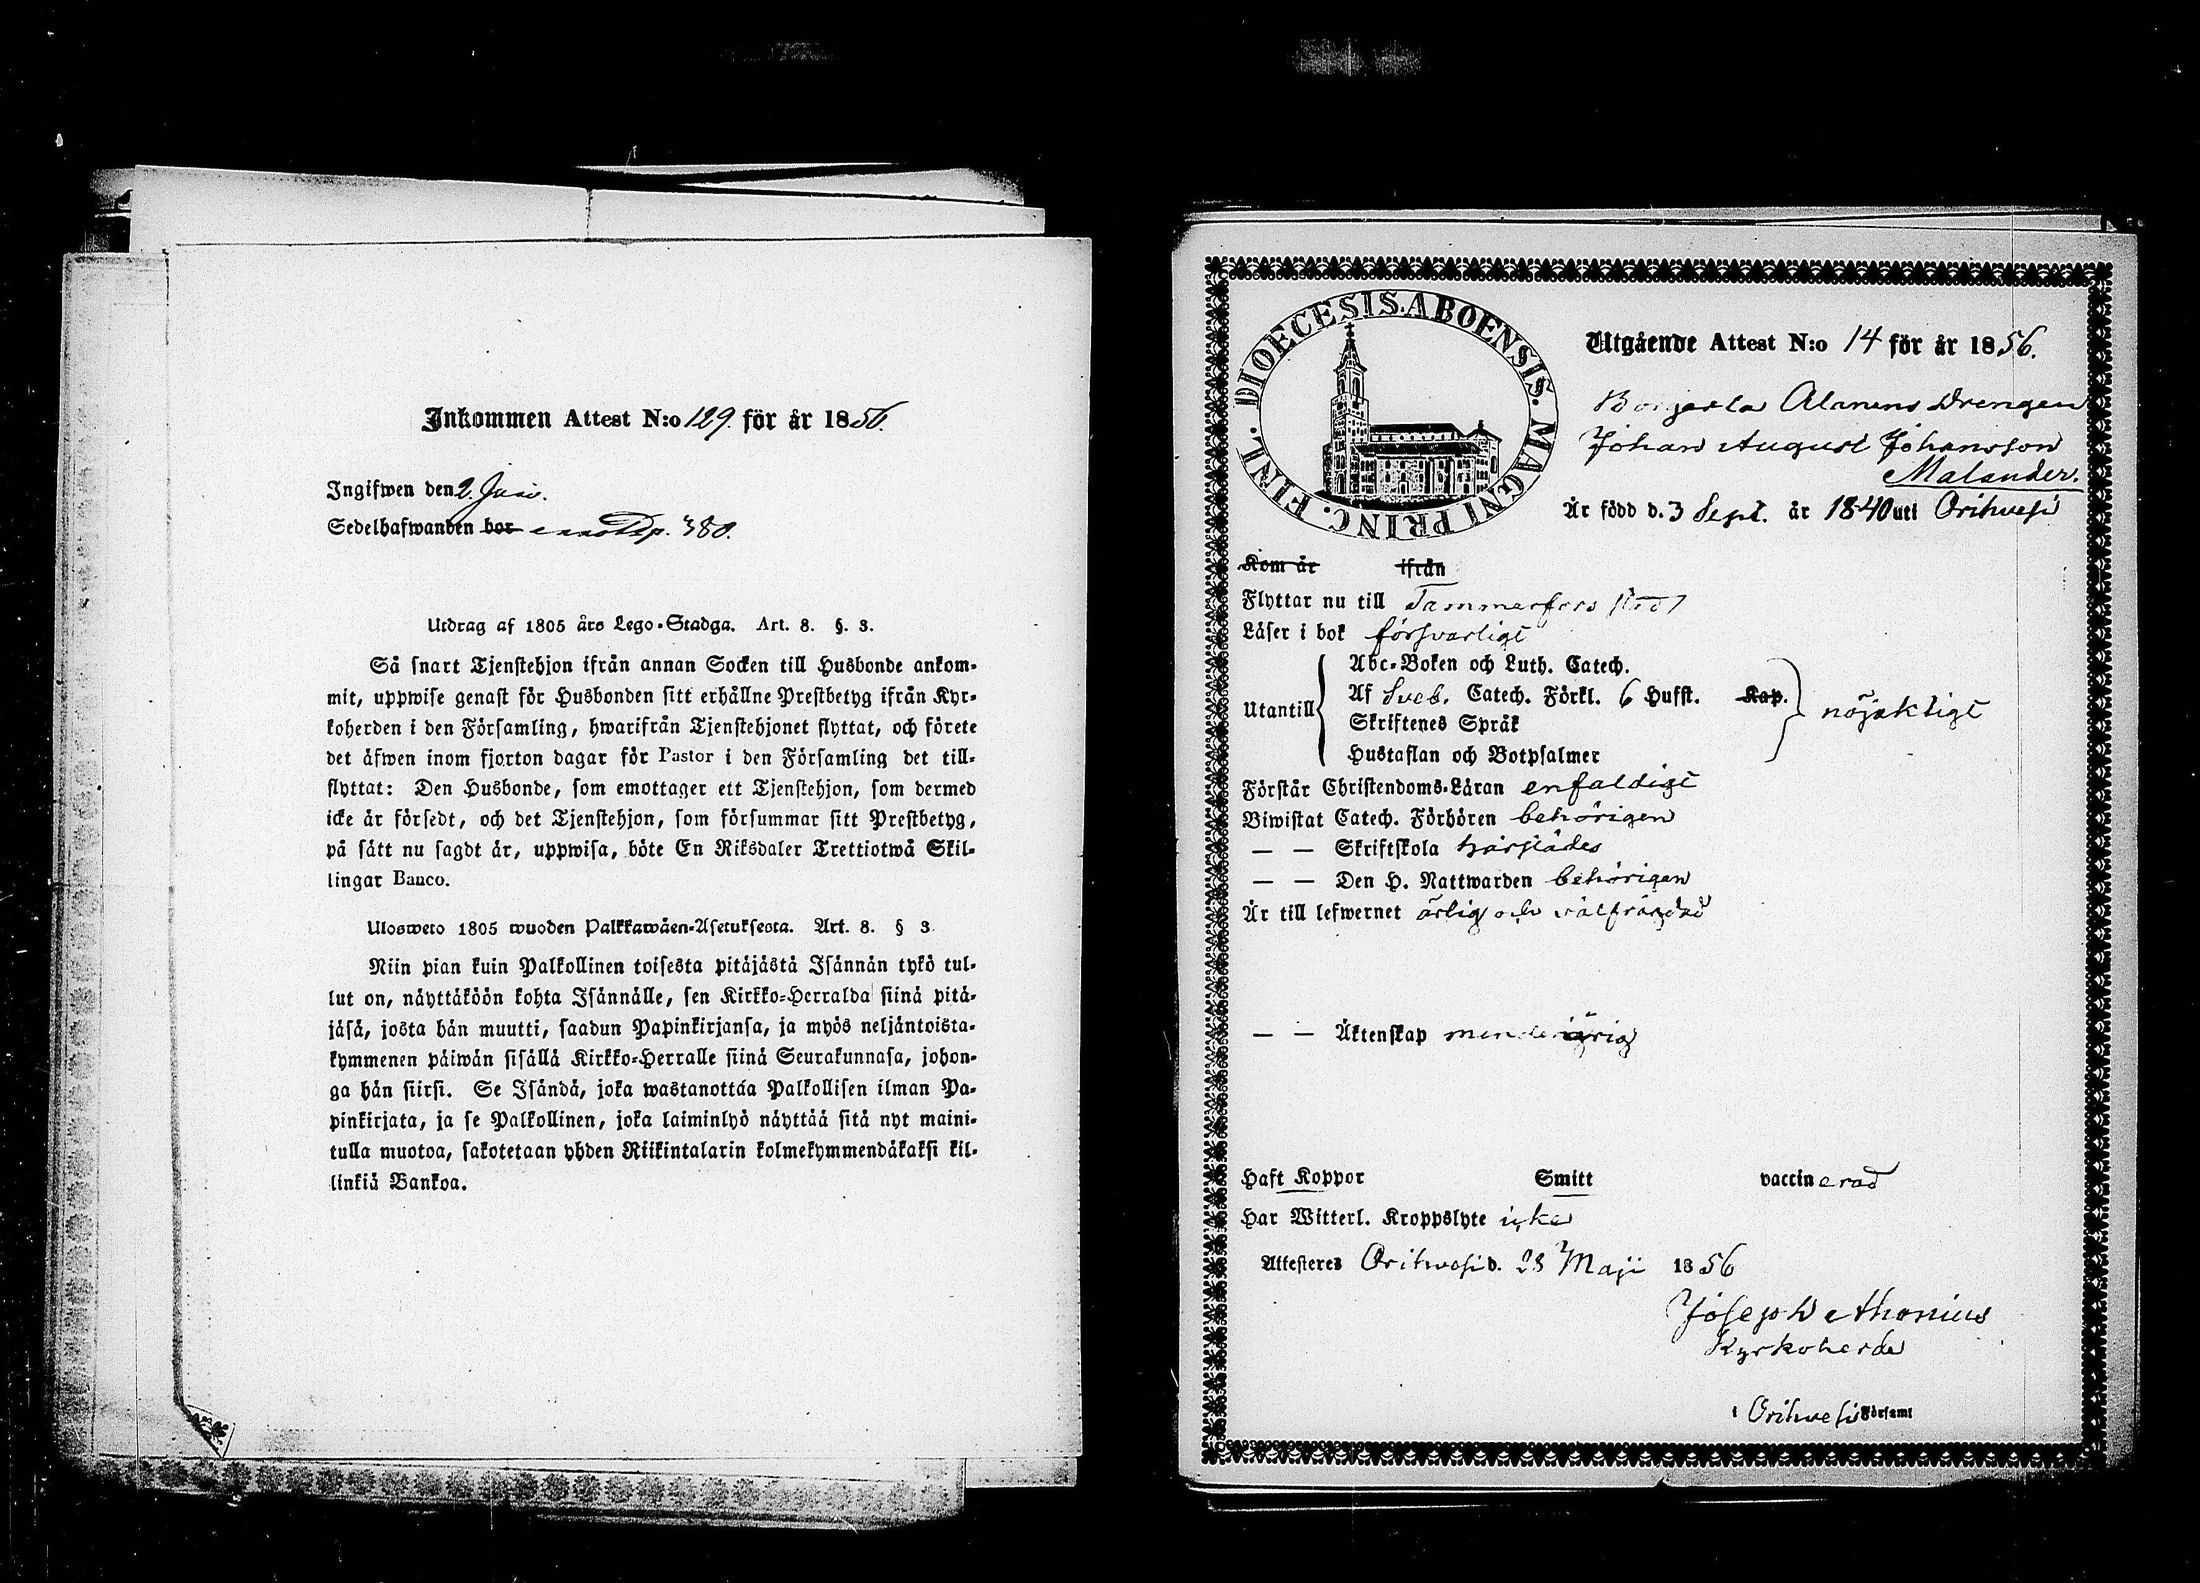 Inkommen Attest N:o 129. för år 1856.
Ingifwen den 2. Juni.
Sedelhafwanden bor pag. 380.
Utdrag af 1805 års Lego-Stadga. Art. 8. §. 3.
Så snart Tjenstehjon ifrån annan Socken till Husbonde ankom-
mit, uppwise genast för Husbonden sitt erhållne Prestbetyg ifrån Kyr-
koherden i den Församling, hwarifrån Tjenstehjonet flyttat, och förete
det äfwen inom fjorton dagar för Pastor i den Församling det till-
flyttat: Den Husbonde, som emottager ett Tjenstehjon, som dermed
icke är försedt, och det Tjenstehjon, som försummar sitt Prestbetyg,
på sätt nu sagdt är, uppwisa, böte En Riksdaler Trettiotwå Skil-
lingar Banco.
Ulosweto 1805 wuoden Palkkawäen-Asetuksesta. Art. 8. § 3.
Niin pian kuin Palkollinen toisesta pitäjästä Isännän tykö tul-
lut on, näyttäköön kohta Isännälle, sen Kirkko-Herralda siinä pitä-
jäsä, josta hän muutti, saadun Papinkirjansa, ja myös neljäntoista-
kymmenen päiwän sisällä Kirkko-Herralle siinä Seurakunnasa, johon-
ga hän siirsi. Se Isändä, joka wastanottaa Palkollisen ilman Pa-
pinkirjata, ja se Palkollinen, joka laiminlyö näyttää sitä nyt maini-
tulla muotoa, sakotetaan yhden Riikintalarin kolmekymmendäkaksi kil-
linkiä Bankoa.
DIOECESIS. ABOENSIS. MAGNI PRINC. FINL.
Utgående Attest N:o 14 för år 1856.
Alanens Drengen
Johan August Johansson
Malander.
Är född d. 3 Sept. år 1840 uti Orihvesi
Kom år ifrån
Flyttar nu till Tammerfors stad
Läser i bok försvarligt
Abc-Boken och Luth. Catech.
Utantill Af Sveb. Catech. Förkl. 6 Hufst. Kap. nöjaktigt
Skriftenes Språk
Hustaflan och Botpsalmer
Förstår Christendoms-Läran enfaldigt
Biwistat Catech. Förhören behörigen
— — Skriftskola härstädes
— — Den H. Nattwarden behörigen
Är till lefwernet ärlig och välfräjdad
— — Äktenskap minderårig
Haft Koppor Smitt vaccinerad
Har Witterl. Kroppslyte icke
Attesteres Orihvesi d. 28 Maji 1856
Joseph Dethonius
Kyrkoherde
i Orihvesi Församl